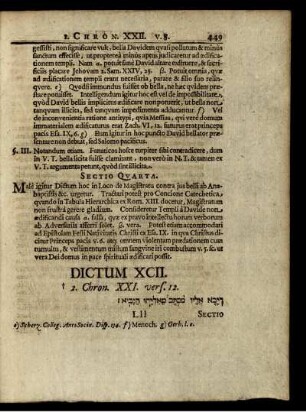 1. CHRON. XXII. v. 8. 449
gessisti, non significare vult, bella Davidem quasi pollutum & minus
sanctum effecisse, ut propterea minus aptus judicaretur ad ædificationem
templi. Nam α. potuit sane David altare extruere, & sacrificiis
placare Jehovam 2. Sam. XXIV, 25. β. Potuit omnia, quæ
ad ædificationem templi erant necessaria, parare & filio suo relinquere.
e) Quod si immundus fuisset ob bella, ne hæc quidem præstare
potuisset. Intelligendum igitur hoc est vel de impossibilitate,
quod David bellis impliciti ædificare non potuerit, ut bella non
tanquam illicita, sed tanquam impedimenta adducantur. f) Vel
de inconvenientia ratione antitypi, quia Messias, qui vere domum
immaterialem ædificaturus erat Zach. VI, 12. futurus erat princeps
pacis Esa. IX, 6. g) Hunc igitur in hoc puncto David bellator præsentare
non debuit, sed Salomo pacificus.
§. III. Notandum etiam. Fanaticos hosce turpiter sibi contradicere, dum
in V. T. bella licita fuisse clamitant, non vero in N. T. & tamen ex
V. T. argumenta petunt, quod sint illicita.
SECTIO QUARTA.
Male igitur Dictum hoc in Loco de Magistratu contra jus belli ab Anabaptistis
&c. urgetur. Tractari poterit pro Concione Catechetica,
quando in Tabula Hierarchica ex Rom. XIII. docetur, Magistratum
non frustra gerere gladium. Consideretur Templi à Davide non
ædificandi causa α. falsa, quæ ex pravo intellectu horum verborum
ab Adversariis afferri solet. β. vera. Potest etiam accommodari
ad Epistolam Festi Nativitatis Christi ex Esa. IX. in qua Christus dicitur
Princeps pacis
vers Dei domus in pace spirituali ædificari possit.
DICTUM XCII.
† 2. Chron. XXI. vers. 12.
וַיָּבֹא אֵלָיו מִכְתָּב מֵאֵלִיָּהוּ הַנָּבִיא
Lll SECTIO
e) Scherz. Colleg. Anti-Socin. Disp. f) Menoch. g) Gerh. l. c.